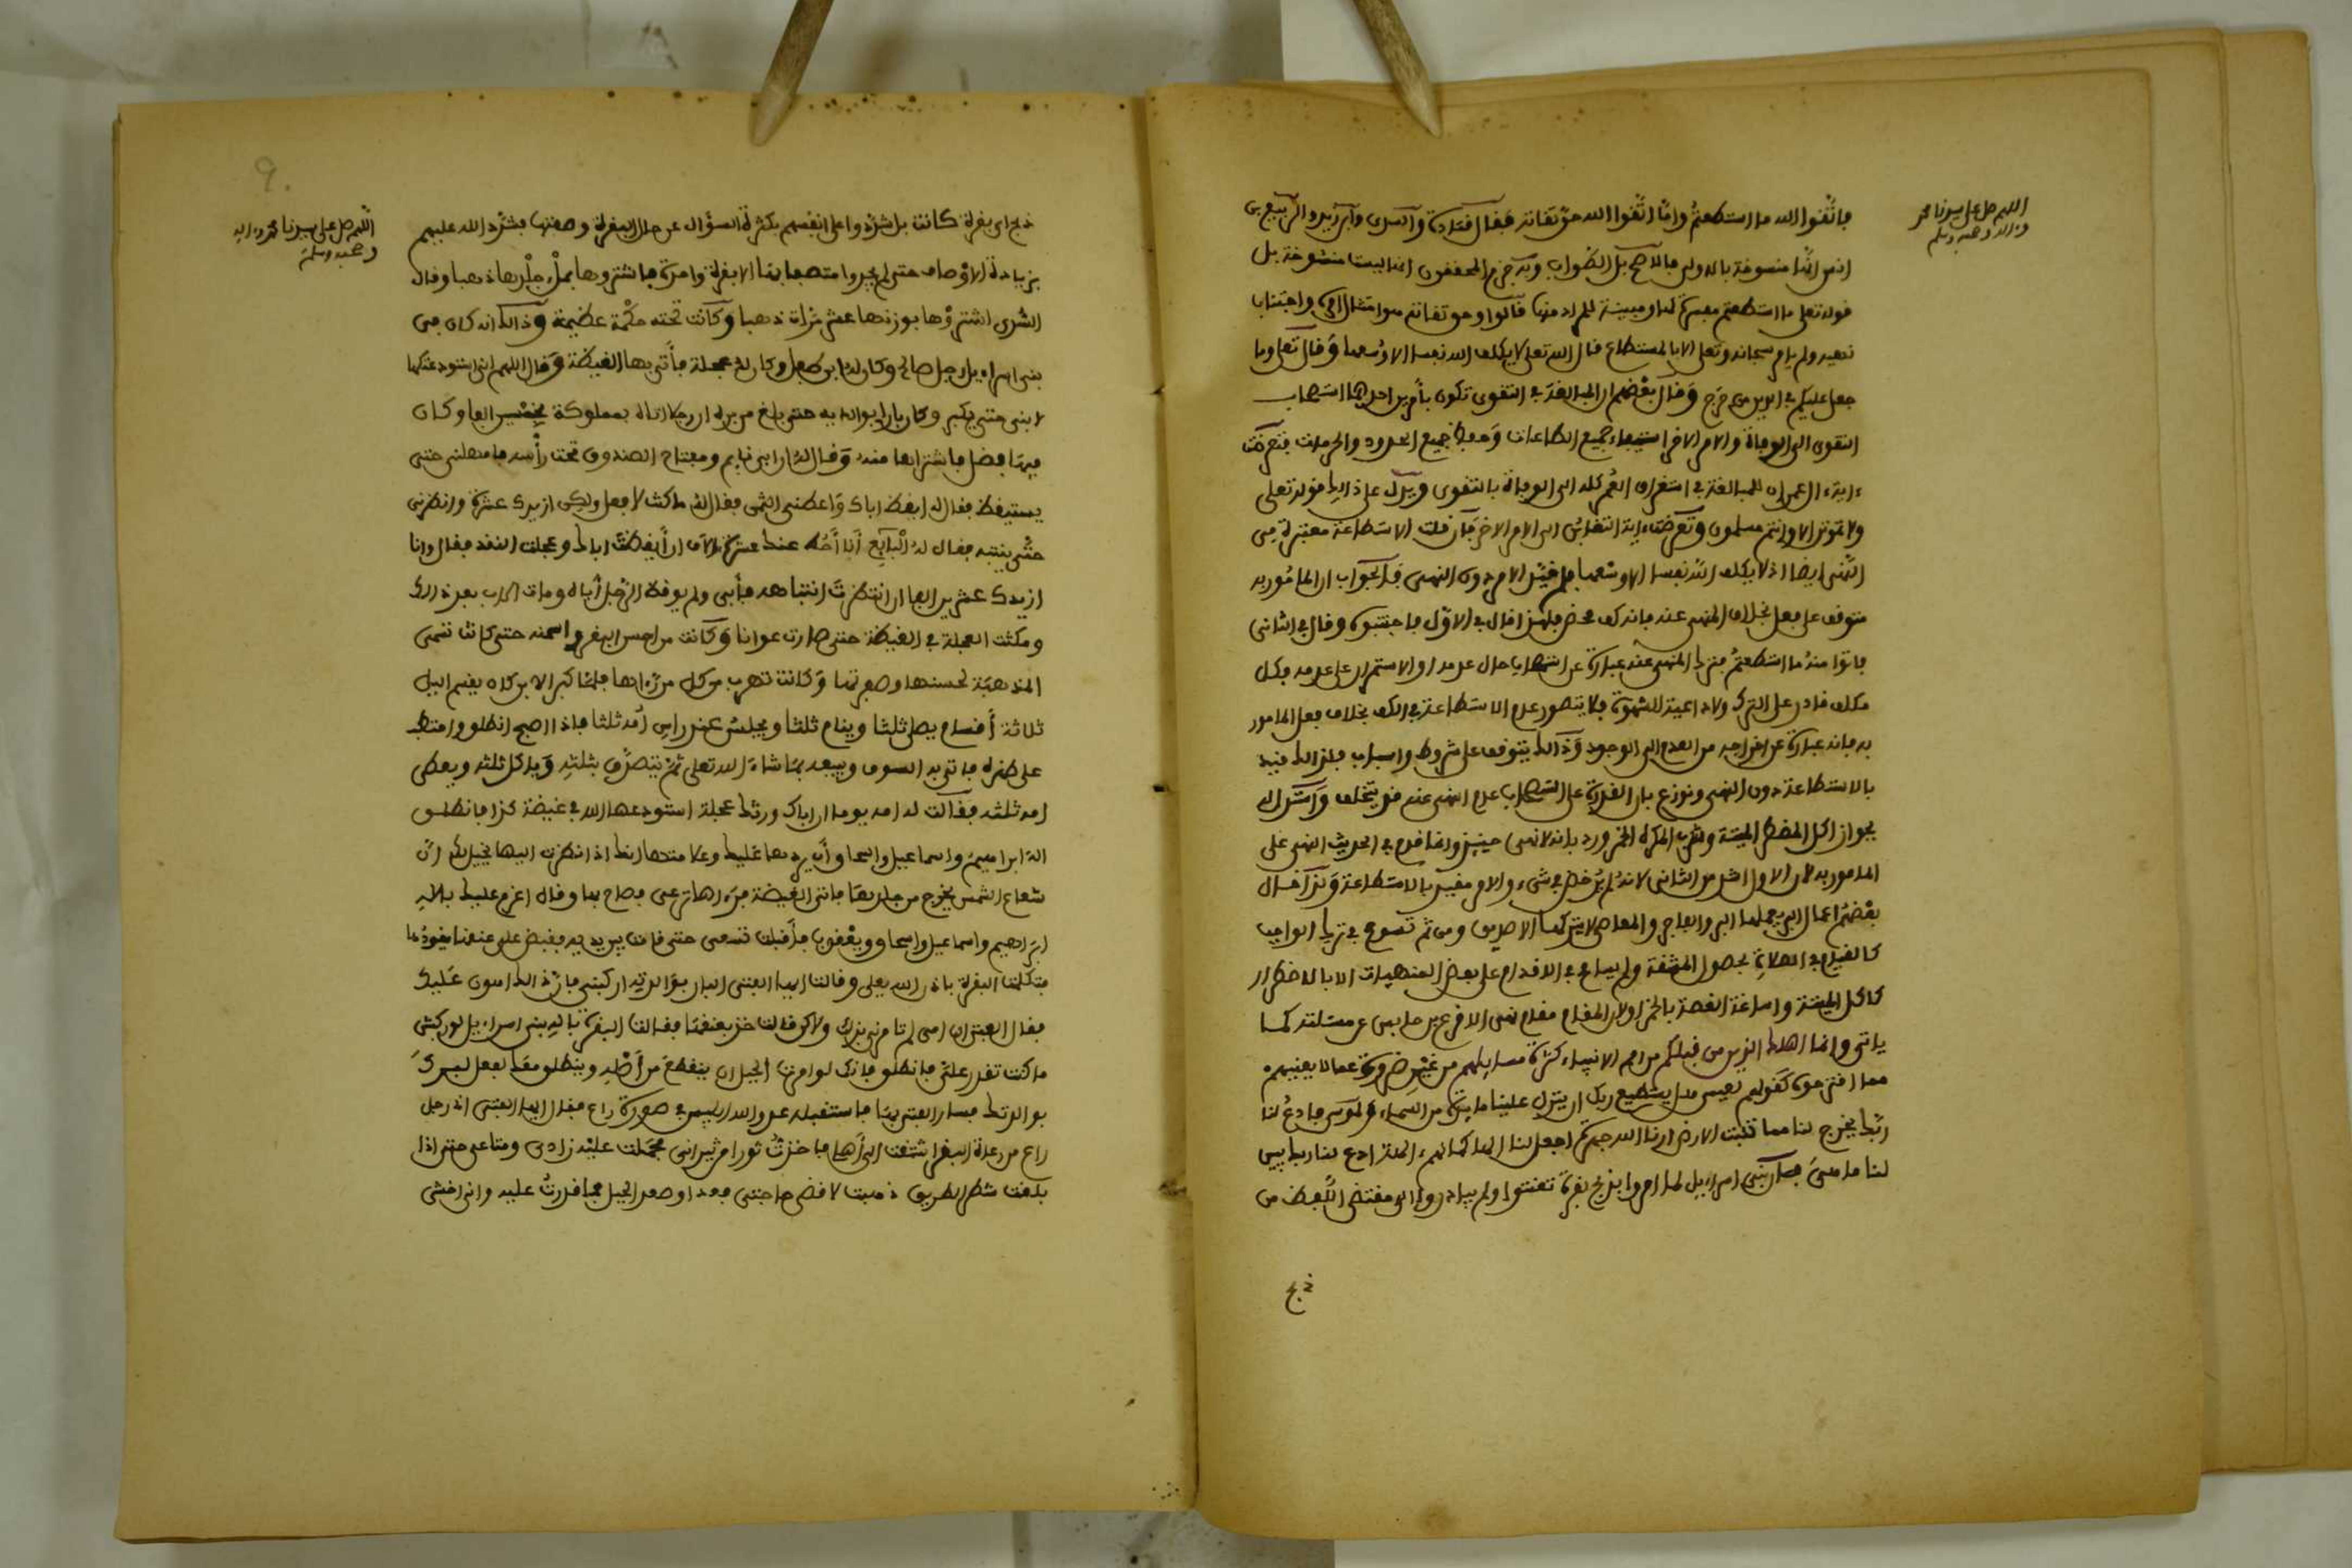 اللهم صل على سيدنا محمد
وءاله وصحبه وسلم
فاتقوا الله ما استطعتم وأما اتقوا الله حق تقاته فقال قتادة والسدي وابن زيد والربيع بن
انس انها منسوخة بالاولى فالاصح بل الصواب وبه جزم المحققون انها ليست منسوخة بل
قوله تعلى ما استطعتم مفسرة لها ومبينة للمراد منها قالوا وحق تقاته هو امتثال امره واجتناب
نهيه ولم يامر سبحانه وتعلى الا بالمستطاع قال الله تعلى لا يكلف الله نفسا الا وسعها وقال تعلى وما
جعل عليكم في الدين من حرج وقال بعضهم ان المبالغة في التقوى تكون بأمرين احدهما استصحاب
التقوى الى الوفاة والامر الاخر استيفاء جميع الطاعات وحفظ جميع الحدود والحرمات
ءاية ءال عمران للمبالغة في استغراق العمر كله الى الوفاة بالتقوى ويدل على ذالك قوله تعلى
ولا تموتن الا وانتم مسلمون وتعرضت ءاية التغابن الى الامر الاخر فان قلت الاستطاعة معتبرة في
النهي ايضا اذ لا يكلف الله نفسا الا وسعها فلم قيد الامر دون النهي فالجواب ان المامور به
متوقف على فعل بخلاف المنهي عنه فانه كف محض فلهذا قال في الاول فاجتنبوه وقال في الثاني
فاتوا منه ما استطعتم فترك المنهي عنه عبارة عن استصحاب حال عدمه او الاستمرار على عدمه فكل
مكلف قادر على الترك ولا داعية للشهوة فلا يتصور عدم الاستطاعة في الكف بخلاف فعل المامور
به فانه عبارة عن اخراجه من العدم الى الوجود وذالك يتوقف على شروط واسباب فلذالك قيد
بالاستطاعة دون النهي ونوزع بان القدرة على استصحاب عدم المنهي عنه قد يتخلف واستدل له
بجواز اكل المضطر الميتة وشرب المكره الخمر ورد بانه لا نهي حينئذ وانما قدم في الحديث النهي على
المامور به لان الاول اشد من الثاني لانه لم يرخص في شيء والامر مقيد بالاستطاعة وكذا قال
بعضهم اعمال البر يعملها البر والفاجر والمعاصي لا يتركها الا صديق ومن ثم تسومح في ترك الواجب
كالقيام في الصلاة بحصول المشقة ولم يسامح في الاقدام على بعض المنهيات الا بالاضطرار
كاكل الميتة واساغة الغصة بالخمر اولان المقام مقام نهي الاقرع بن حابس عن مسئلته كما
ياتي وانما اهلك الذين من قبلكم من امم الانبياء كثرة مسايلهم من غير ضرورة عما لا يعنيهم
مما اقترحوه كقولهم لعيسى هل يستطيع ربك ان ينزل علينا مايدة من السماء ولموسى فادع لنا
ربك يخرج لنا مما تنبت الارض ارنا الله جهرة اجعل لنا الها كما لهم ءالهة ادع لنا ربك يبين
لنا ما هي فان بني اسراييل لما امروا بذبح بقرة تعنتوا ولم يبادروا الى مقتضى اللفظ من
ذبح
9.
اللهم صل على سيدنا محمد وءاله
وصحبه وسلم
ذبح اي بقرة كانت بل شددوا على انفسهم بكثرة السؤال عن حال البقرة وصفتها فشدد الله عليهم
بزيادة الاوصاف حتى لم يجدوا متصفا بها الا بقرة واحدة فاشتروها بملء جلدها ذهبا وقال
السدي اشتروها بوزنها عشر مرات ذهبا وكانت تحته حكمة عظيمة وذالك انه كان في
بني اسراءيل رجل صالح وكان له ابن طفل وكان له عجلة فأتى بها الغيضة وقال اللهم اني استودعتكها
لابني حتى يكبر وكان بارا بوالديه حتى بلغ من بره ان رجلا اتاه بمملوكة بخمسين الفا وكان
فيها فضل فاشتراها منه وقال له ان ابي نايم ومفتاح الصندوق تحت رأسه فامهلني حتى
يستيقظ فقال له ايقظ اباك واعطني الثمن فقال له ما كنت لافعل ولكن ازيدك عشرة وانظرني
حتى ينتبه فقال له البايع أنا أحط عنك عشرة ءالاف ان أيقظت اباك وعجلت النقد فقال وانا
ازيدك عشرين الفا ان انتظرت انتباهه فأبى ولم يوقظ الرجل أباه ومات الاب بعد ذالك
ومكثت العجلة في الغيضة حتى صارت عوانا وكانت من احسن البقر واسمنه حتى كانت تسمى
المذهبة لحسنها وصفرتها وكانت تهرب من كل من رءاها فلما كبر الابن كان يقسم اليل
ثلاثة أقسام يصلي ثلثا وينام ثلثا ويجلس عند راس أمه ثلثا فاذا اصبح انطلق واحتطب
على ظهره فاتى به السوق ويبيعه بما شاء الله تعلى ثم يتصدق بثلثه وياكل ثلثه ويعطي
امه ثلثه فقالت له امه يوما ان اباك ورثك عجلة استودعها الله في غيضة كذا فانطلق
اله ابراهيم واسماعيل واسحاق أن يردها عليك وعلامتها انك اذا نظرت اليها يخيل لك أن
شعاع الشمس يخرج من جلدها فاتى الغيضة فرءاها ترعى فصاح بها وقال اعزم عليك بإله
ابراهيم واسماعيل واسحاق ويعقوب فأقبلت تسعى حتى قامت بين يديه فقبض على عنقها يقودها
فتكلمت البقرة باذن الله تعلى وقالت ايها الفتى البار بوالديه اركبني فان ذالك اهون عليك
فقال الفتى ان امي لم تامرني بذلك ولاكن قالت خذ بعنقها فقالت البقرة بإله بني اسراءيل لو ركبتني
ما كنت تقدر علي فانطلق فانك لو امرت الجبل ان ينقطع من أصله وينطلق معك لفعل لبرك
بوالدتك فسار الفتى بها فاستقبله عدو الله ابليس في صورة راع فقال ايها الفتى انه رجل
راع من رعاة البقر اشتقت الى أهلي فاخذت ثورا من ثيراني فحملت عليه زادي ومتاعي حتى اذا
بلغت شطر الطريق ذهبت لاقضي حاجتي فعدا وصعد الجبل فما قدرت عليه واني اخشى